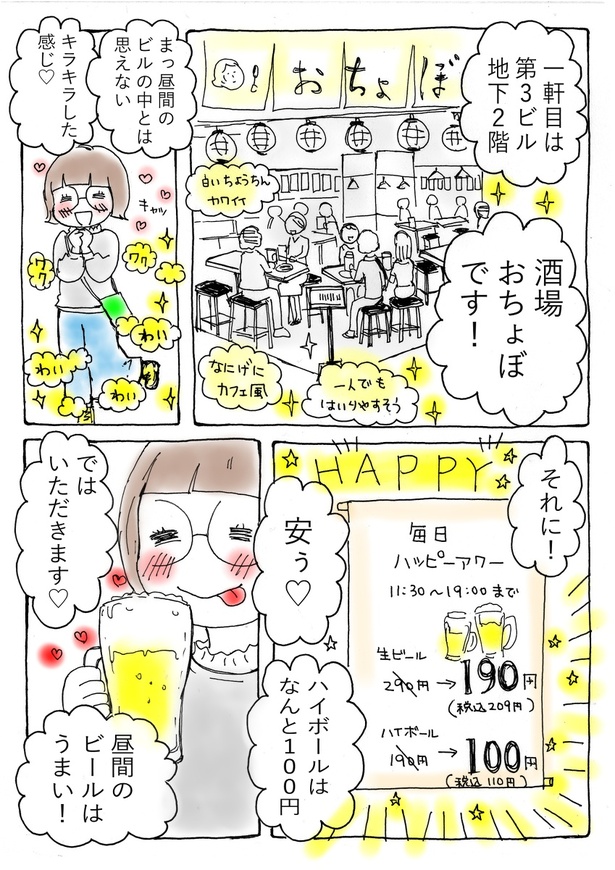 一軒目は
第3ビル
地下2階
おちょぼ
白いちょうちん
カワイイ
酒場
おちょぼ
です！
なにげに
カフェ風
一人でも
はいりやすそう
まっ昼間の
ビルの中とは
思えない
キラキラした
感じ♡
キャッ
ワク
ワク
わい
わい
わい
それに！
HAPPY
毎日
ハッピーアワー
11:30～19:00まで
生ビール
290円→190円
(税込209円)
ハイボール
190円→100円
(税込110円)
安ぅ♡
ハイボールは
なんと100円
では
いただきます♡
昼間の
ビールは
うまい！